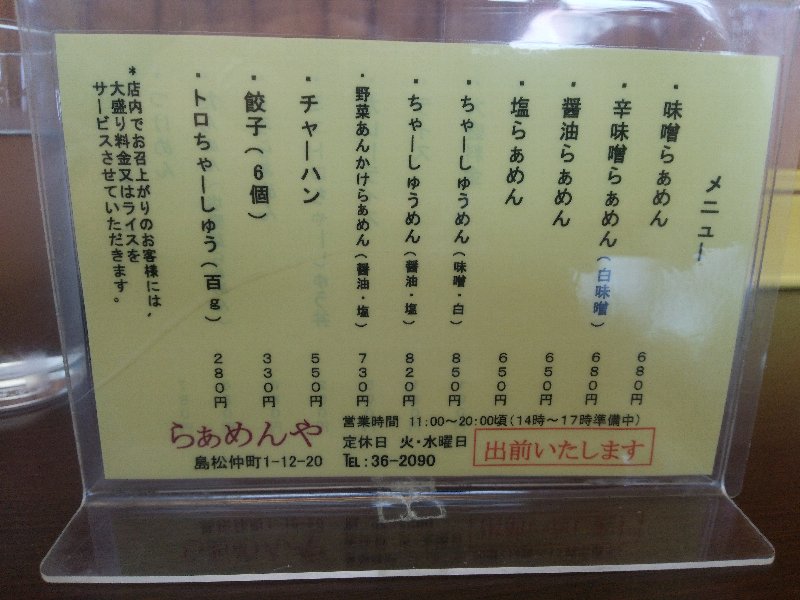 メニュー
・味噌らぁめん 680円
・辛味噌らぁめん(白味噌) 680円
・醤油らぁめん 650円
・塩らぁめん 650円
・ちゃーしゅうめん(味噌・白) 850円
・ちゃーしゅうめん(醤油・塩) 820円
・野菜あんかけらぁめん(醤油・塩) 730円
・チャーハン 550円
・餃子(6個) 330円
・トロちゃーしゅう(百g) 280円
*店内でお召上がりのお客様には、
大盛り料金又はライスを
サービスさせていただきます。
らぁめんや
島松仲町1-12-20
営業時間 11:00～20:00頃(14時～17時準備中)
定休日 火・水曜日
TEL:36-2090
出前いたします